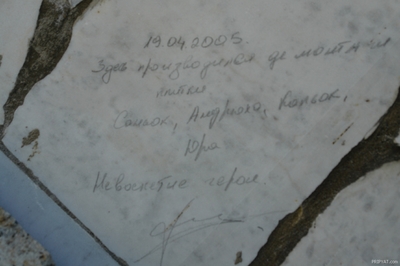 19.04.2005.
Здесь производился демонтаж
плитки
Саньок, Андрюха, Кольок,
Юра
Невоспетые герои.